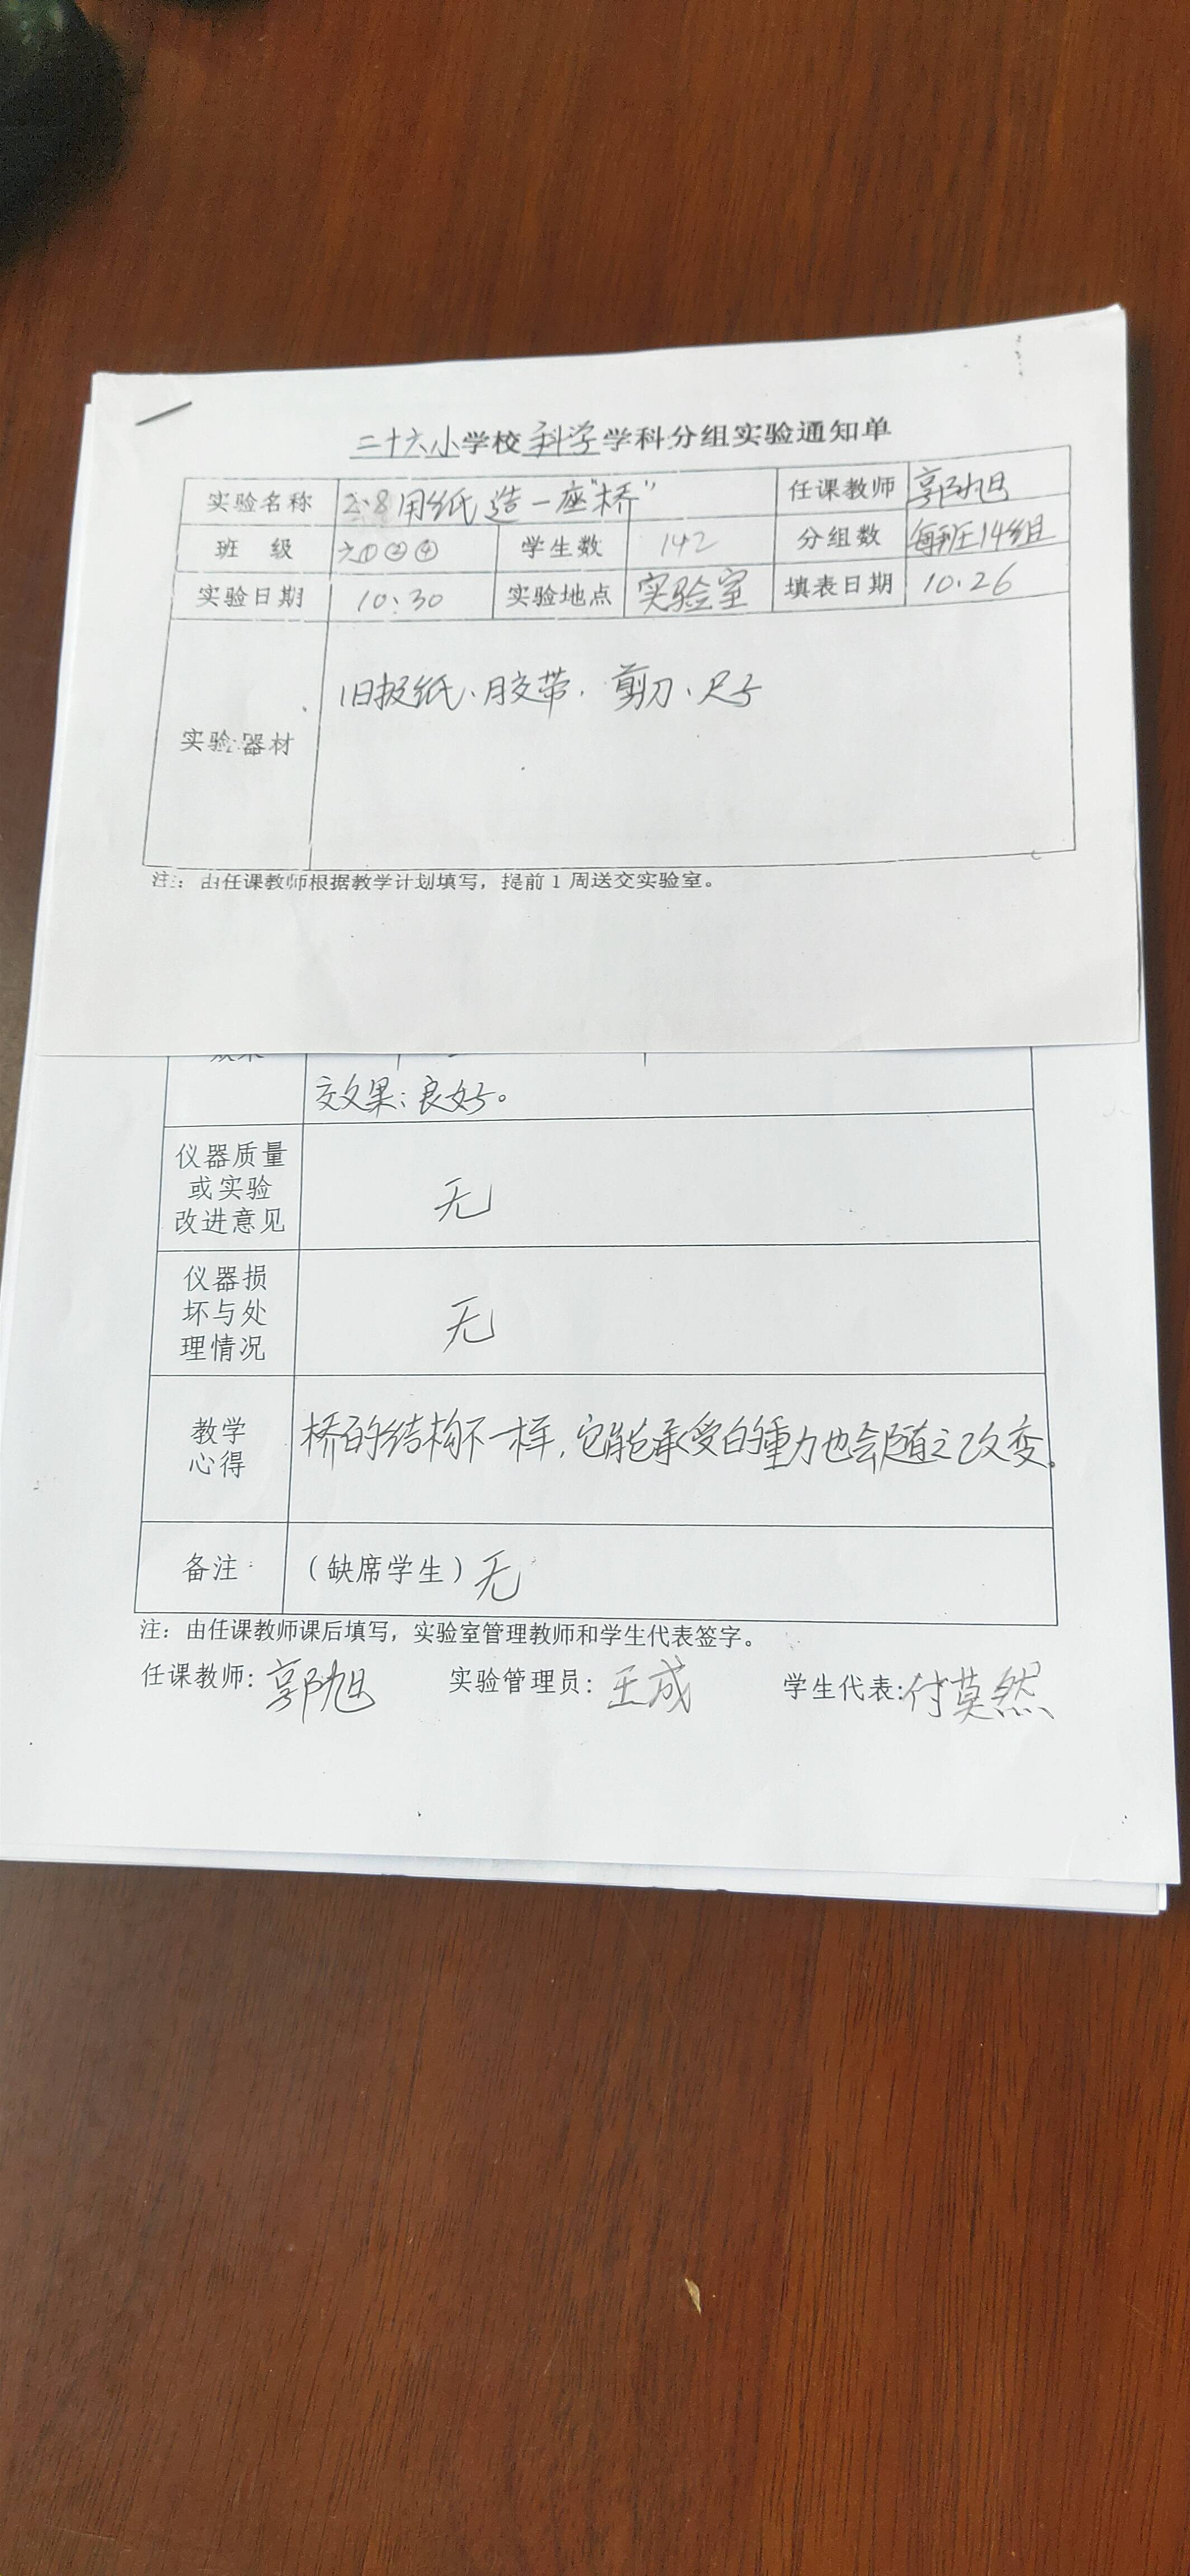 二十六小学校科学学科分组实验通知单
实验名称 2.8用纸造一座"桥" 任课教师 郭旭
班 级 六①②④ 学生数 142 分组数 每班14组
实验日期 10.30 实验地点 实验室 填表日期 10.26
实验器材 旧报纸、胶带、剪刀、尺子
注:由任课教师根据教学计划填写,提前1周送交实验室。
效果:良好。
仪器质量
或实验
改进意见
无
仪器损
坏与处
理情况
无
教学
心得
桥的结构不一样,它能承受的重力也会随之改变。
备注 (缺席学生)无
注:由任课教师课后填写,实验室管理教师和学生代表签字。
任课教师:郭旭 实验管理员:王成 学生代表:付莫然